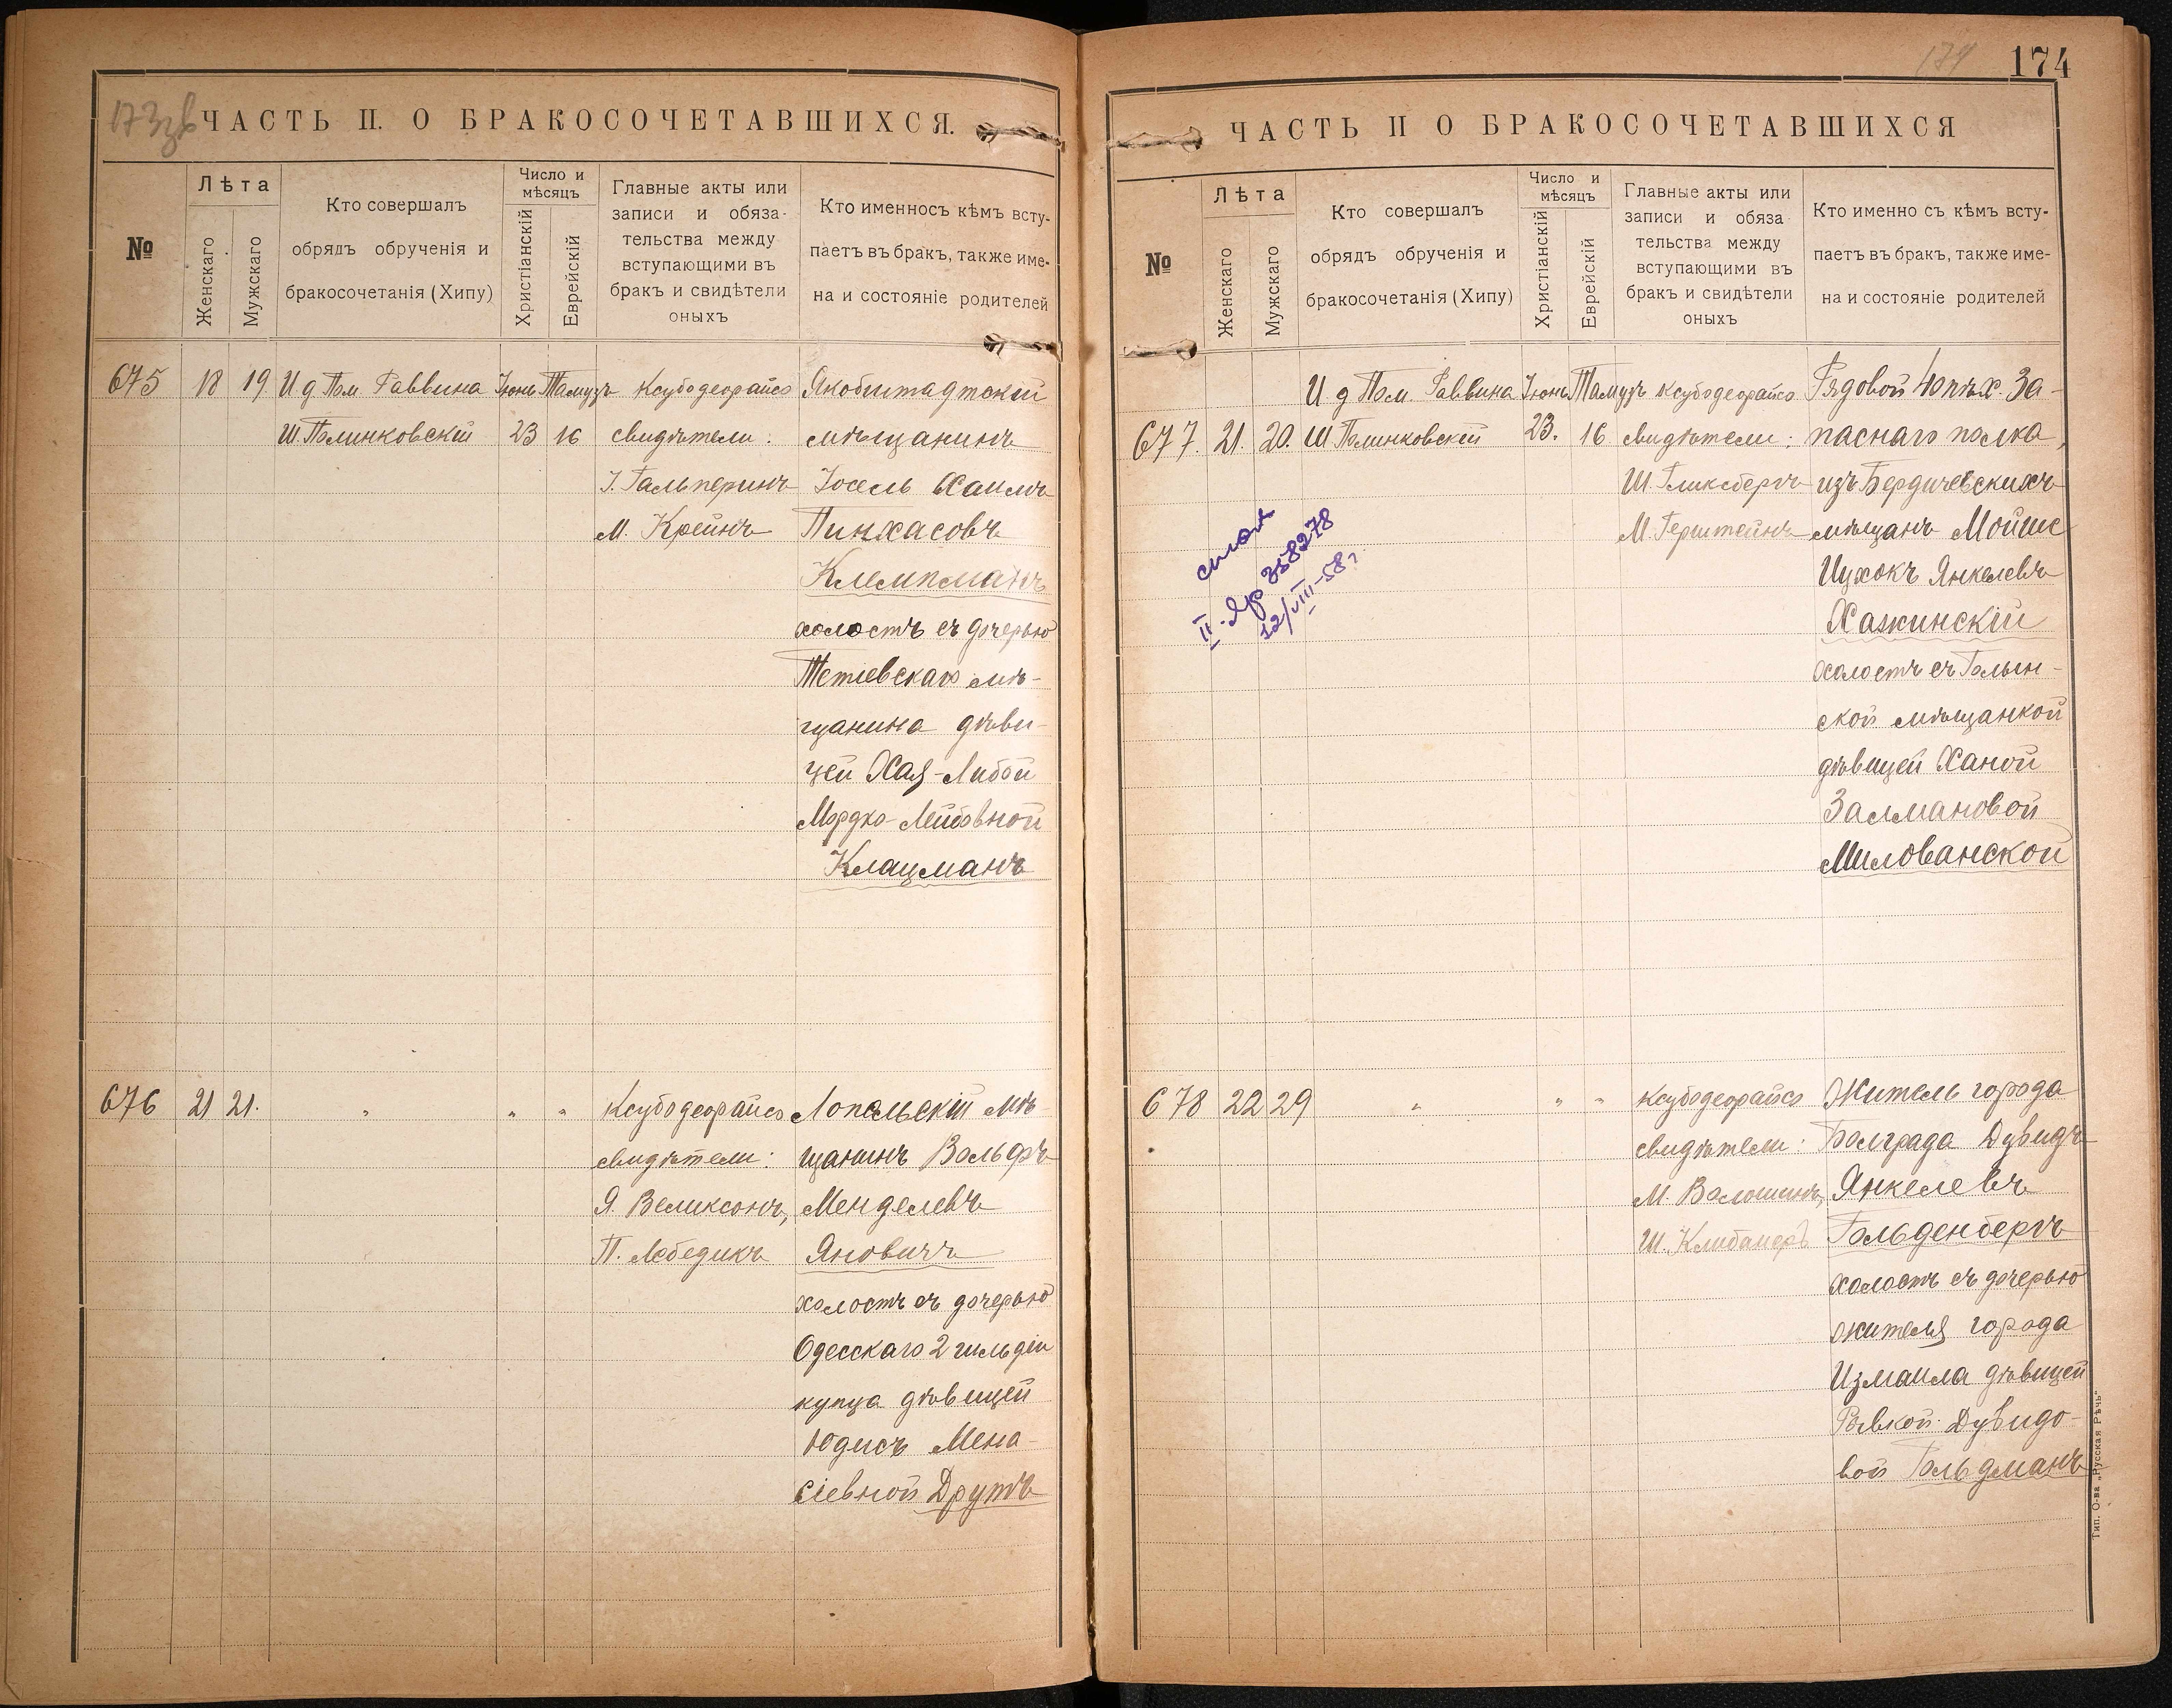 173 зв
ЧАСТЬ II. О БРАКОСОЧЕТАВШИХСЯ.
№
Лѣта
Женскаго
Мужскаго
Кто совершалъ
обрядъ обрученія и
бракосочетанія (Хипу)
Число и
мѣсяцъ
Христіанскій
Еврейскій
Главные акты или
записи и обяза-
тельства между
вступающими въ
бракъ и свидѣтели
оныхъ
Кто именносъ кѣмъ всту-
паетъ въ бракъ, также име-
на и состояніе родителей
675
18
19
И д Пом. Раввина
Ш. Полинковскій
Іюнь
23
Тамузъ
16
Ксубодеорайсо
свидѣтели:
І. Гальперинъ
М. Крейнъ
Якобштадтскій
мѣщанинъ
Іосель Хаимъ
Пинхасовъ
Клемпманъ
холостъ съ дочерью
Тетіевскаго мѣ-
щанина дѣви-
цей Хая-Либой
Мордко-Лейбовной
Клацманъ
676
21
21.
"
"
"
Ксубодеорайсо
свидѣтели:
Я. Великсонъ,
П. Лебедикъ
Лопельскій мѣ-
щанинъ Вольфъ
Менделевъ
Яновичъ
холостъ съ дочерью
Одесскаго 2 гильдіи
купца дѣвицей
Юдисъ Мена-
сіевной Друтъ
174
174
ЧАСТЬ II О БРАКОСОЧЕТАВШИХСЯ
№
Лѣта
Женскаго
Мужскаго
Кто совершалъ
обрядъ обрученія и
бракосочетанія (Хипу)
Число и
мѣсяцъ
Христіанскій
Еврейскій
Главные акты или
записи и обяза
тельства между
вступающими въ
бракъ и свидѣтели
оныхъ
Кто именно съ кѣмъ всту-
паетъ въ бракъ, также име-
на и состояніе родителей
677.
21.
20.
И. д Пом. Раввина
Ш Полинковскій
Іюнь
23.
Тамузъ
16
Ксубодеорайсо
свидѣтели:
Ш. Гликсбергъ
М. Герштейнъ
Рядовой 40 пѣх. За-
паснаго полка,
изъ Бердичевскихъ
мѣщанъ Мойше
Ицхокъ Янкелевъ
Хажинскій
холостъ съ Гольин-
ской мѣщанкой
дѣвицей Ханой
Залмановой
Миловановской
II-Яр 358278
12/VIII-58г
678
22
29
"
"
"
Ксубодеорайсо
свидѣтели:
М. Волошинъ,
Ш. Клибанеръ
Житель города
Болграда Дувидъ
Янкелевъ
Гольденбергъ
холостъ съ дочерью
жителя города
Измаила дѣвицей
Рывкой Дувидо-
вой Гольдманъ
Тип. О-ва „Русская Рѣчь“